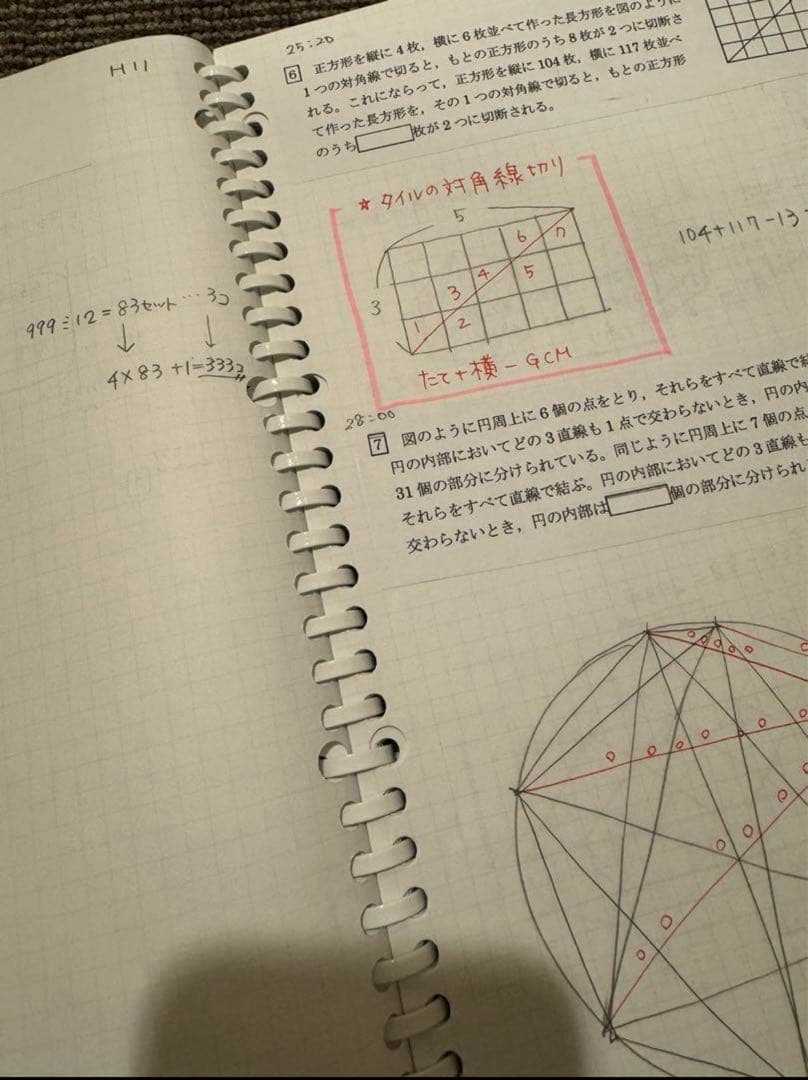 H11
999÷12=83セット…3コ
4×83+1=333コ
25:20
6 正方形を縦に4枚，横に6枚並べて作った長方形を図のように
1つの対角線で切ると，もとの正方形のうち8枚が2つに切断さ
れる。これにならって，正方形を縦に104枚，横に117枚並べ
て作った長方形を，その1つの対角線で切ると，もとの正方形
のうち 枚が2つに切断される。
☆タイルの対角線切り
5
3
6 7
3 4 5
1 2
たて+横-GCM
104+117-13
28:00
7 図のように円周上に6個の点をとり，それらをすべて直線で結
円の内部においてどの3直線も1点で交わらないとき，円の内
31個の部分に分けられている。同じように円周上に7個の点
それらをすべて直線で結ぶ。円の内部においてどの3直線も
交わらないとき，円の内部は 個の部分に分けられ